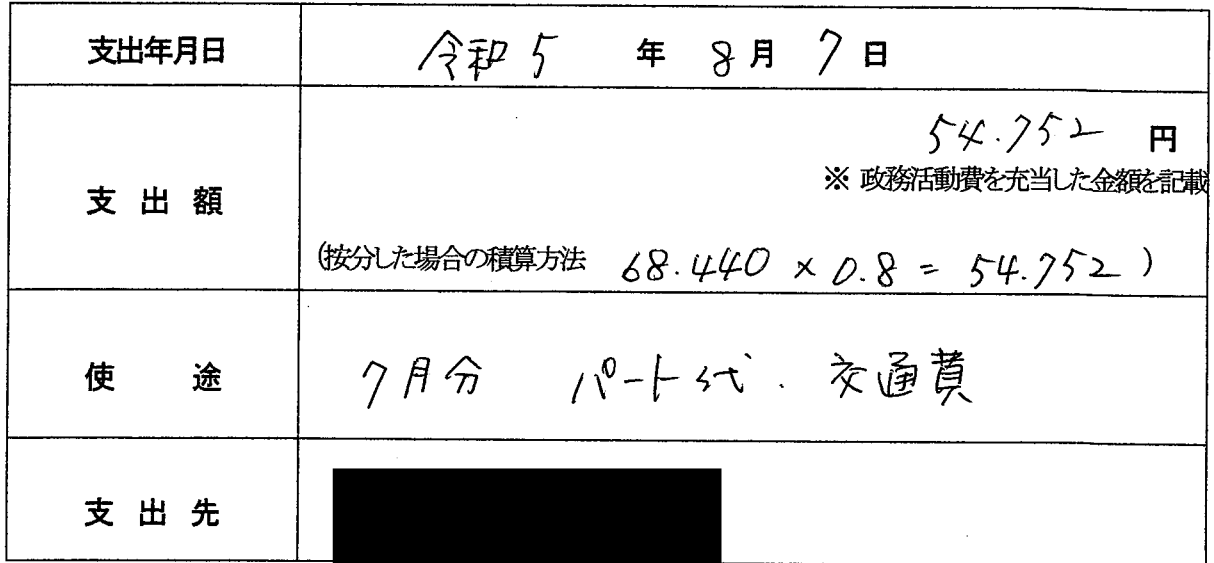 支出年月日 令和5 年 8月 7日
54.752 円
※ 政務活動費を充当した金額を記載
支 出 額
(按分した場合の積算方法 68.440 × 0.8 = 54.752 )
使 途 7月分 パート代. 交通費
支 出 先